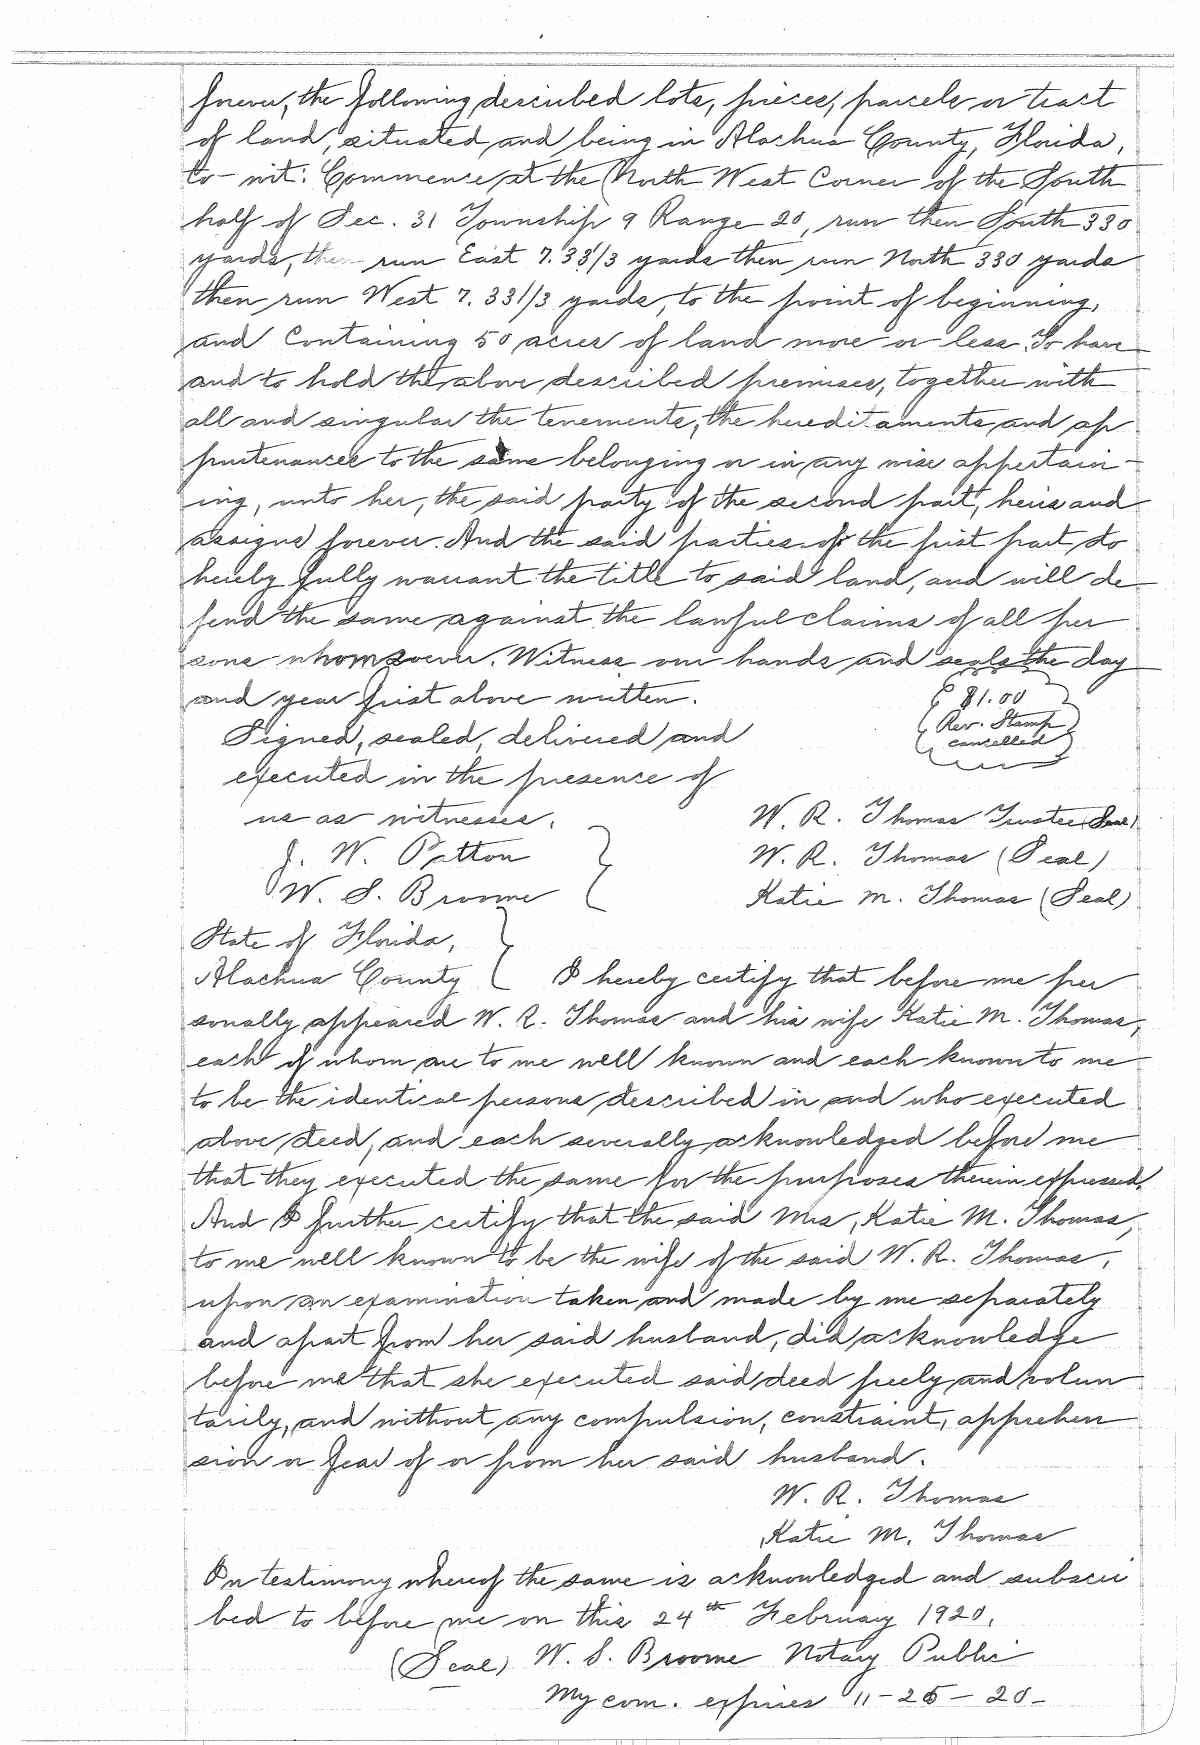 forever, the following described lots, pieces, parcels or tract
of land, situated and being in Alachua County, Florida,
to-wit: Commence at the North West Corner of the South
half of Sec. 31 Township 9 Range 20, run then South 330
yards, then run East 7.33 1/3 yards then run North 330 yards
then run West 7.33 1/3 yards, to the point of beginning,
and Containing 50 acres of land more or less. To have
and to hold the above described premises, together with
all and singular the tenements, the hereditaments and ap
purtenances to the same belonging or in any wise appertain-
ing, unto her, the said party of the second part, heirs and
assigns forever. And the said parties of the first part do
hereby fully warrant the title to said land, and will de
fend the same against the lawful claims of all per
sons whomsoever. Witness our hands and seals the day
and year first above written.
$1.00
Rev. Stamp
cancelled
Signed, sealed, delivered and
executed in the presence of
us as witnesses.
J. W. Patton
W. S. Broome
W. R. Thomas Trustee (Seal)
W. R. Thomas (Seal)
Katie M. Thomas (Seal)
State of Florida,
Alachua County } I hereby certify that before me per
sonally appeared W. R. Thomas and his wife Katie M. Thomas,
each of whom are to me well known and each known to me
to be the identical persons described in and who executed
above deed, and each severally acknowledged before me
that they executed the same for the purposes therein expressed.
And I further certify that the said Mrs, Katie M. Thomas,
to me well known to be the wife of the said W. R. Thomas,
upon an examination taken and made by me separately
and apart from her said husband, did acknowledge
before me that she executed said deed freely and volun
tarily, and without any compulsion, constraint, apprehen
sion or fear of or from her said husband.
W. R. Thomas
Katie M. Thomas
In testimony whereof the same is acknowledged and subscri
bed to before me on this 24th February 1920.
(Seal) W. S. Broome Notary Public
My com. expires 11-25-20-